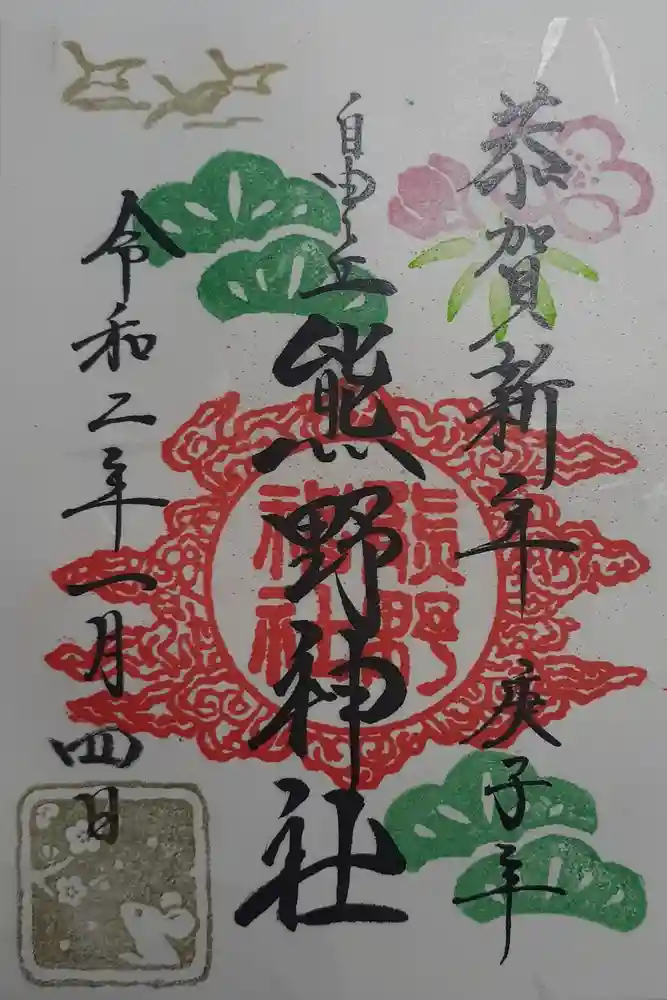 恭賀新年 庚子年
自由ヶ丘 熊野神社
熊野神社
令和二年一月四日